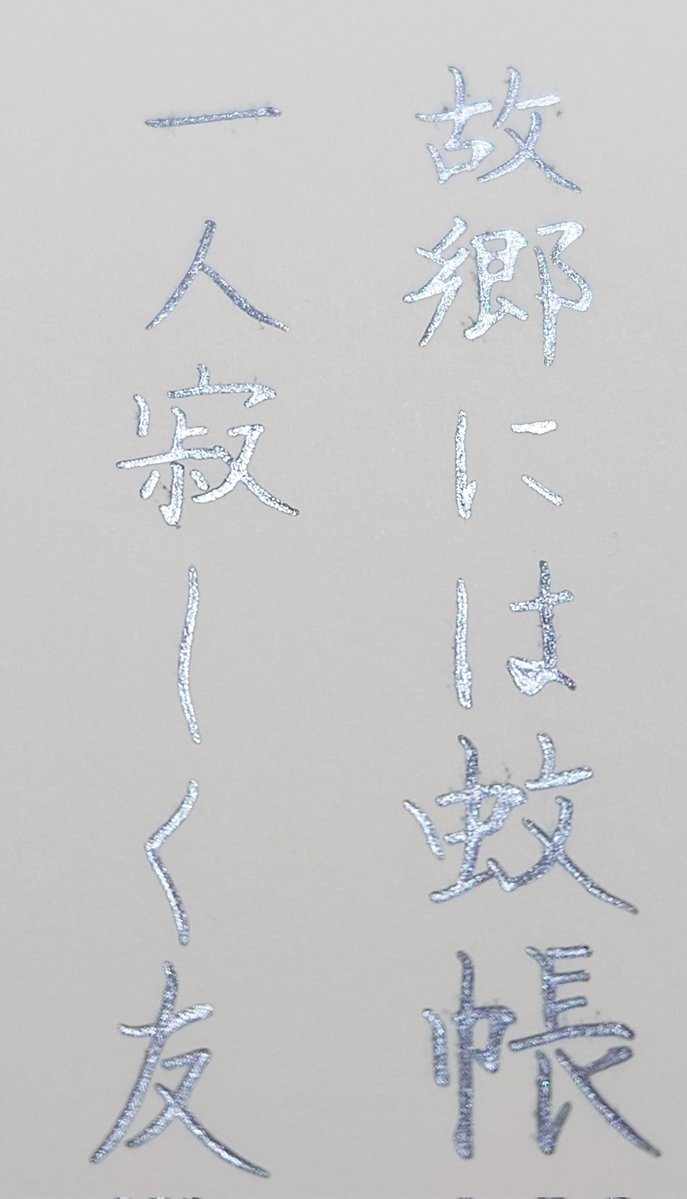 故郷には蚊帳
一人寂しく友